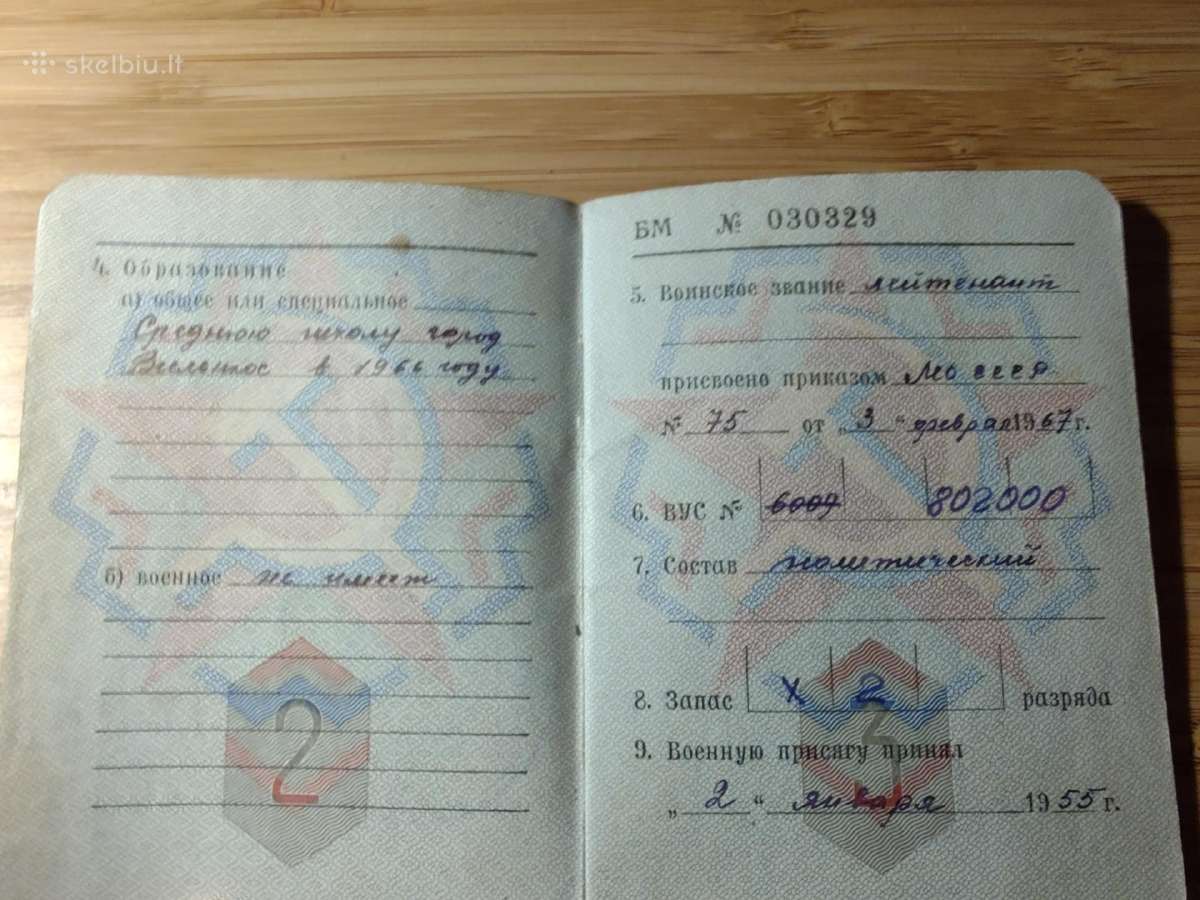 skelbiu.lt
4. Образование
а) общее или специальное
Среднюю школу город
Вильнюс в 1966 году
б) военное не имеет
2
БМ № 030329
5. Воинское звание лейтенант
присвоено приказом
№ 75 от „3“ февраля 1967 г.
6. ВУС № 6007 802000
7. Состав политический
8. Запас X 2 разряда
9. Военную присягу принял
„2“ января 1955 г.
3